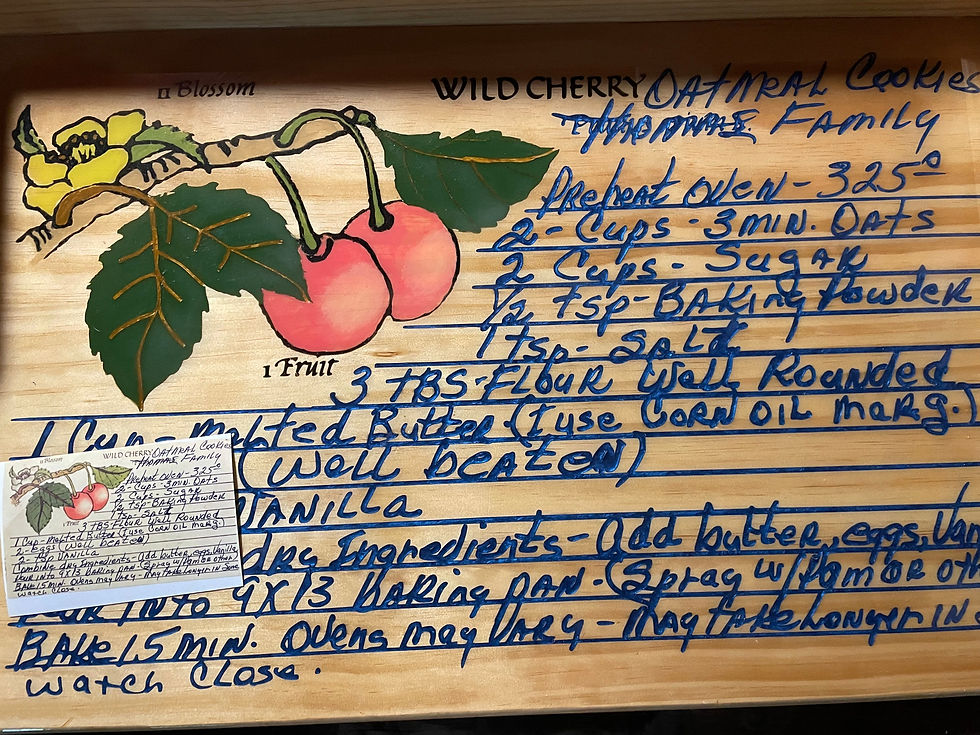 Blossom
WILD CHERRY OATMEAL COOKIES
FAMILY
PREHEAT OVEN - 325°
2 - Cups - 3 MIN. OATS
2 Cups - SugAR
1/2 tsp - BAKing Powder
1 tsp - SALT
1 Fruit
3 TBS - FLOUR Well Rounded
1 Cup - Melted Butter (I use CORN OIL MARg.)
(Well beaten)
VANILLA
dry Ingredients - Add butter, eggs, Van
INTO 9X13 BAKing pan - (Spray w/Pam OR oth
BAKe 15 MIN. Ovens may VARY - MAy TAKe Longer IN
WATCH CLOSE.
Blossom
WILD CHERRY OATMEAL COOKIES
FAMILY
PREHEAT OVEN - 325°
2 - Cups - 3 MIN. OATS
2 Cups - SugAR
1/2 tsp - BAKing Powder
1 tsp - SALT
1 Fruit
3 TBS FLOUR Well Rounded
1 Cup - Melted Butter (I use CORN OIL MARg.)
2 - Eggs (Well beaten)
tsp VANILLA
Combine dry Ingredients - Add butter, eggs, Vanilla
Pour INTO 9X13 BAKing pan - (Spray w/Pam OR other)
BAKe 15 MIN. Ovens may VARY - MAy TAKe Longer IN Some
WATCH CLOSE.